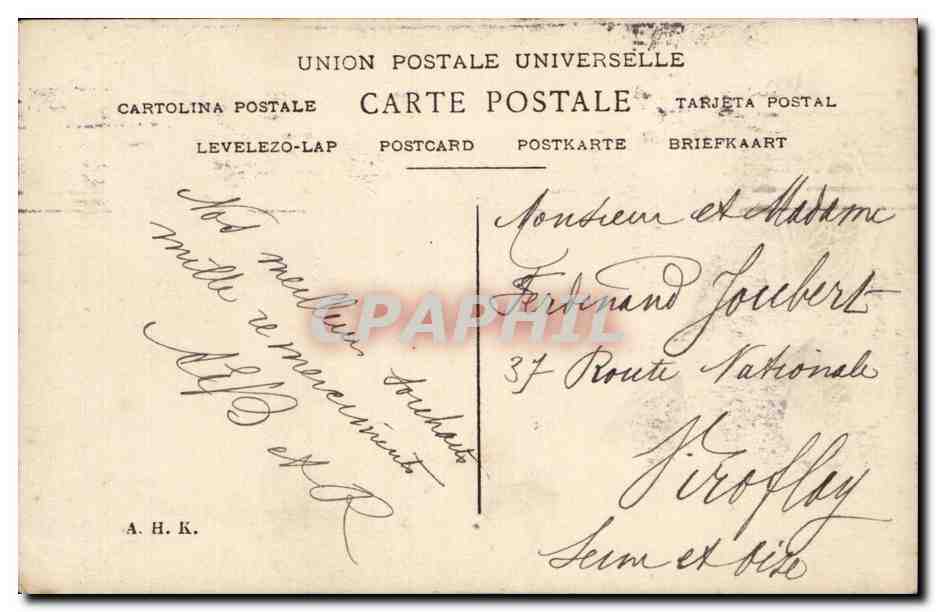 UNION POSTALE UNIVERSELLE
CARTOLINA POSTALE CARTE POSTALE TARJETA POSTAL
LEVELEZO-LAP POSTCARD POSTKARTE BRIEFKAART
Nos meilleurs souhaits
mille remerciments
et R
A. H. K.
Monsieur et Madame
Ferdinand Joubert
37 Route Nationale
Viroflay
Seine et Oise
CPAPHIL